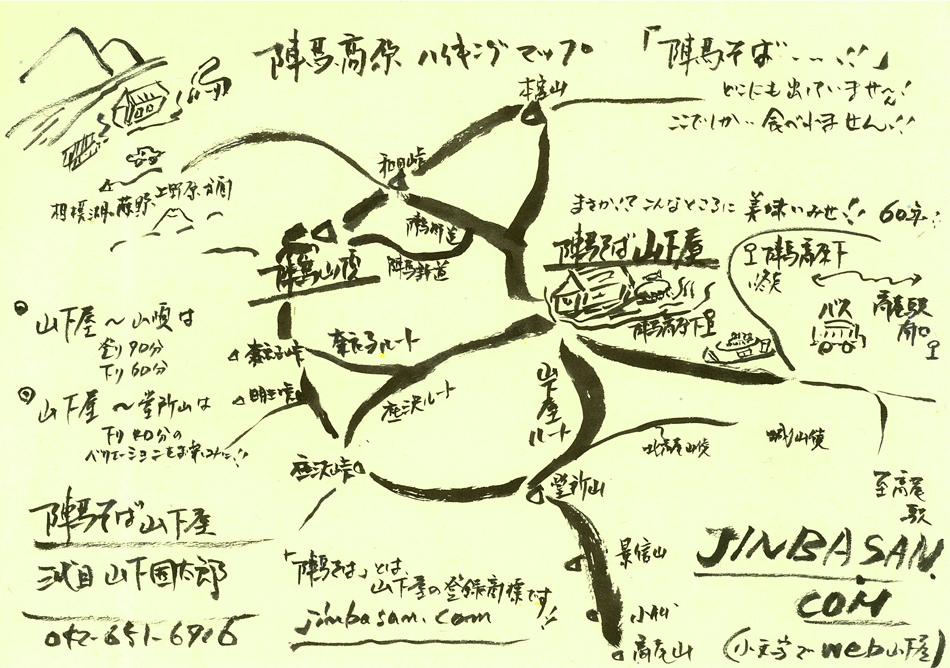 陣馬高原 ハイキングマップ
「陣馬そば・・・!!」
どこにも出ていませ〜ん!
ここでしか・・食べれません!!
本宮山
和田峠
相模湖、藤野、上野原方面
陣馬街道
陣馬新道
陣馬山頂
まさか!? こんなところに 美味いみせ!!
陣馬そば 山下屋
陣馬高原下
終点
バス
高尾駅
陣馬高原下
山下屋〜山頂は
登り90分
下り60分
奈良子峠
奈良子ルート
明王峠
山下屋〜堂所山は
下り40分の
バリエーションをお楽しみに!!
底沢ルート
山下屋ルート
北高尾山稜
底沢峠
堂所山
至高尾駅
陣馬そば 山下屋
三代目 山下國太郎
042-651-6906
「陣馬そば」とは、
山下屋の登録商標です!!
jinbasan.com
景信山
小仏
高尾山
JINBASAN.
COM
(小文字でweb山下屋)